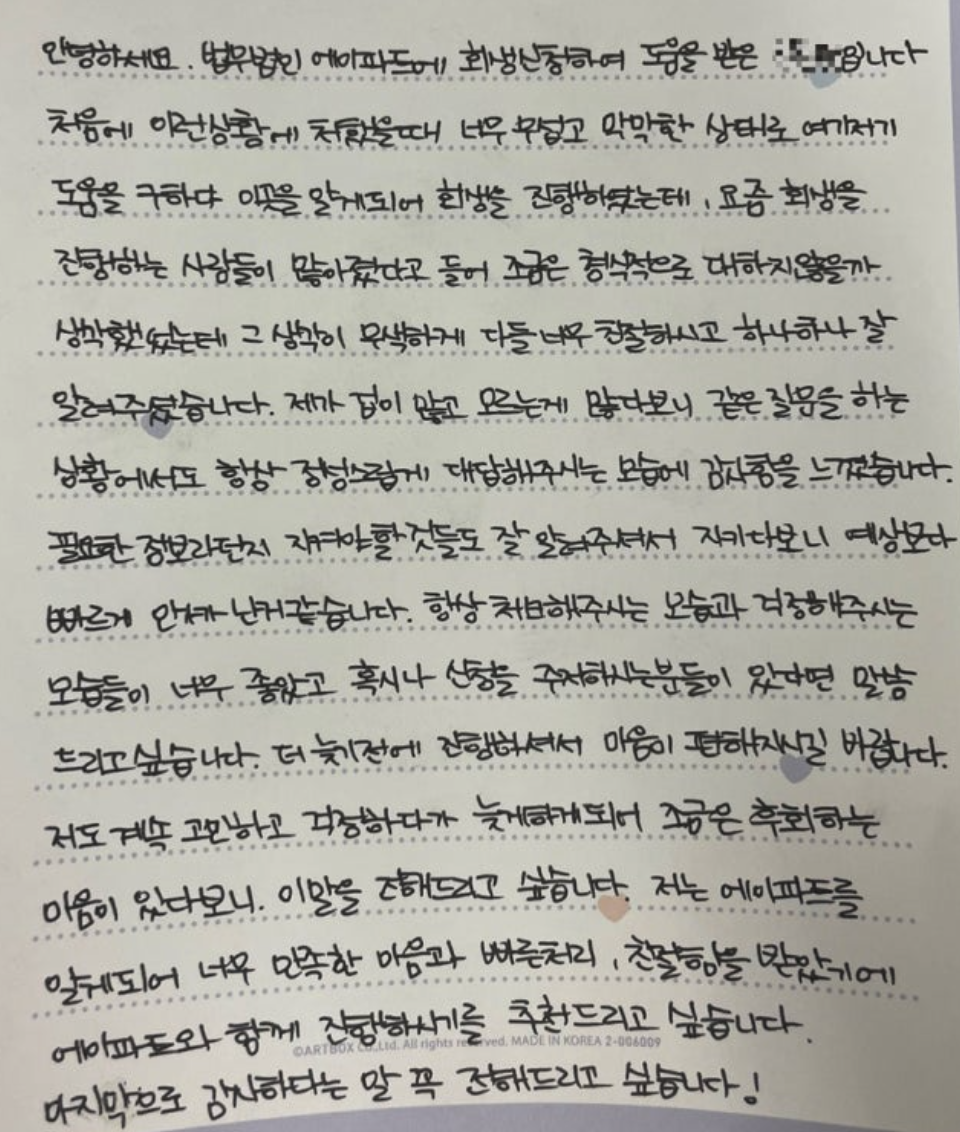 안녕하세요. 법무법인 에이파트에 회생신청하여 도움을 받은 입니다
처음에 이런상황에 처했을때 너무 무섭고 막막한 상태로 여기저기
도움을 구하다 이곳을 알게되어 회생을 진행하였는데, 요즘 회생을
진행하는 사람들이 많아졌다고 들어 조금은 형식적으로 대하지않을까
생각했었는데 그 생각이 무색하게 다들 너무 친절하시고 하나하나 잘
알려주셨습니다. 제가 겁이 많고 모르는게 많다보니 같은 질문을 하는
상황에서도 항상 정성스럽게 대답해주시는 모습에 감사함을 느꼈습니다.
필요한 정보라던지 지켜야할것들도 잘 알려주셔서 지키다보니 예상보다
빠르게 인가가 난거같습니다. 항상 처브해주시는 모습과 걱정해주시는
모습들이 너무 좋았고 혹시나 신청을 주저하시는분들이 있다면 말씀
드리고싶습니다. 더 늦기전에 진행하셔서 마음이 편해지시길 바랍니다.
저도 계속 고민하고 걱정하다가 늦게하게되어 조금은 후회하는
마음이 있다보니. 이말을 전해드리고 싶습니다. 저는 에이파트를
알게되어 너무 만족한 마음과 빠른처리, 친절함을 받았기에
에이파트와 함께 진행하시기를 추천드리고 싶습니다.
©ARTBOX Co.,Ltd. All rights reserved. MADE IN KOREA 2-006009
마지막으로 감사하다는 말 꼭 전해드리고 싶습니다!